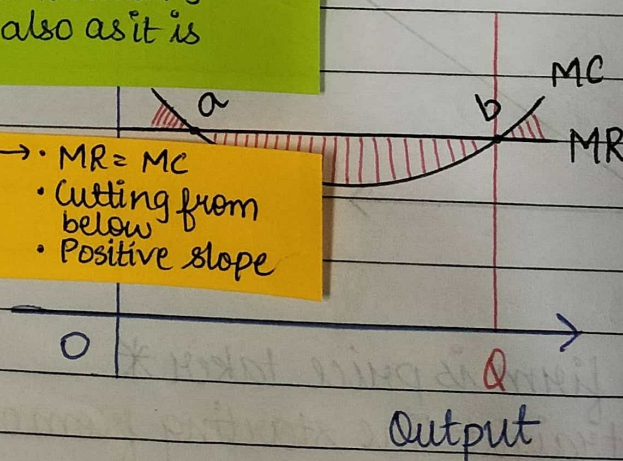 also as it is
a
b
MC
MR
→ • MR = MC
• Cutting from
below
• Positive slope
O
Q
Output